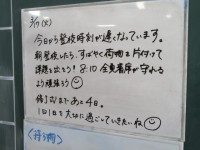 3/17(火)
今日から登校時刻が遅くなっています。
朝登校したら、すばやく荷物を片付けて
課題を出そう! 8:10 全員着席が守れる
よう頑張ろう
修了式まであと4日。
1日1日を大切に過ごしていきたいね